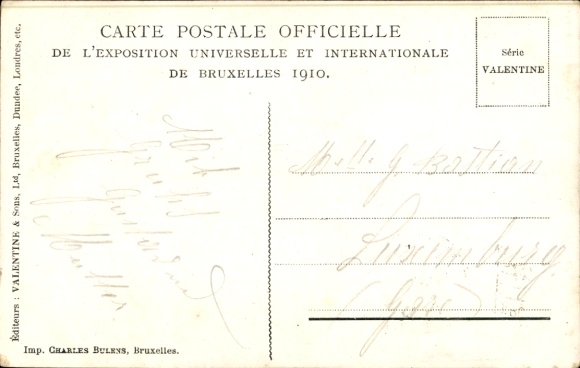 CARTE POSTALE OFFICIELLE
DE L'EXPOSITION UNIVERSELLE ET INTERNATIONALE
DE BRUXELLES 1910.
Série
VALENTINE
Éditeurs : VALENTINE & Sons, Ltd, Bruxelles, Dundee, Londres, etc.
Mit
Melle G. Bastian
Luxemburg
(Gare)
Imp. CHARLES BULENS, Bruxelles.